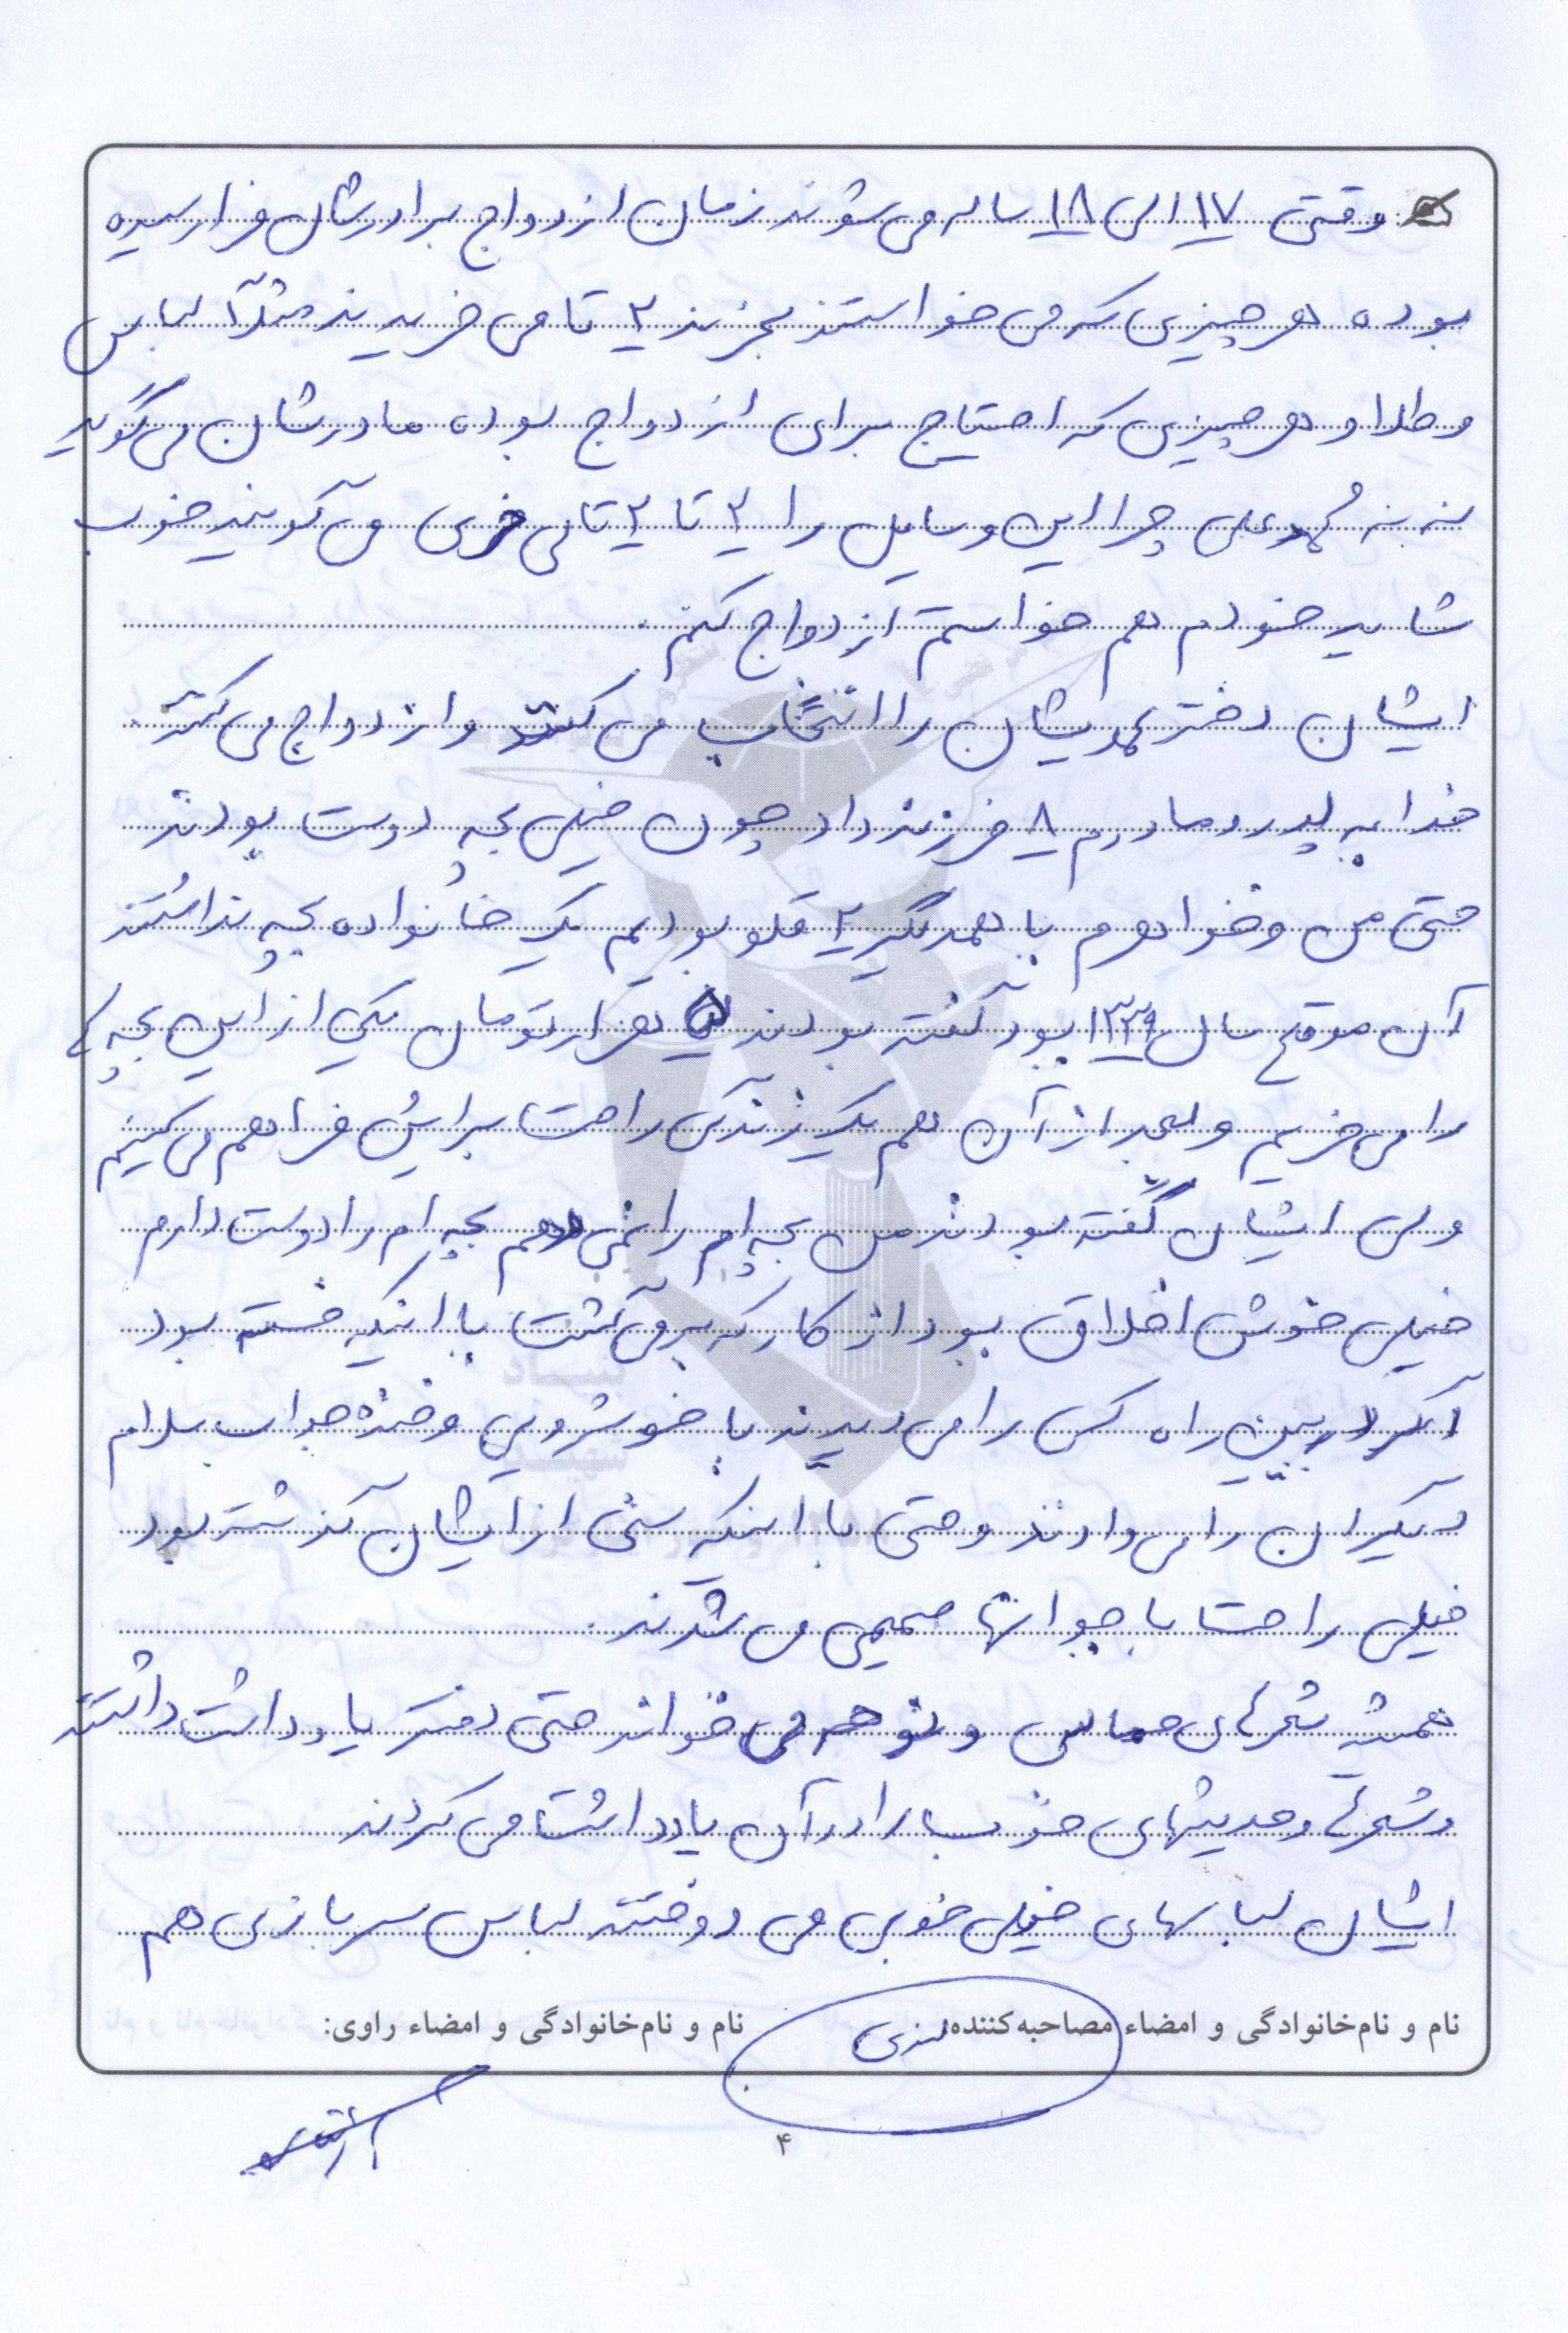 وقتی ۱۷ الی ۱۸ ساله می شوند زمان ازدواج برادرشان فرا رسیده
بوده هر چیزی که می خواستند بخرند ۲ تا می خریدند مثلاً لباس
و طلا و هر چیزی که احتیاج برای ازدواج بوده مادرشان می گوید
ننه محمدعلی چرا این وسایل را ۲ تا ۲ تا می خری می گویند خوب
شاید خودم هم خواستم ازدواج کنم.
ایشان دختر عمه‌یشان را انتخاب می کنند و ازدواج می کنند.
خدا به پدر و مادرم ۸ فرزند داد چون خیلی بچه دوست بودند
حتی من و خواهرم با همدیگر ۲ قلو بودیم یک خانواده بچه نداشتند
آن موقع سال ۱۳۳۹ بود گفته بودند هزار تومان یکی از این بچه ها
را می خریم و بعد از آن هم یک زندگی راحت برایش فراهم می کنیم
ولی ایشان گفته بودند من بچه ام را نمی دهم بچه ام را دوست دارم
خیلی خوش اخلاق بود از کار که برمی گشت با اینکه خسته بود
اگر در بین راه کسی را می دیدند با خوشرویی و خنده جواب سلام
دیگران را می دادند و حتی با اینکه سنی از ایشان گذشته بود
خیلی راحت با جوانها صمیمی می شدند.
همیشه شعرهای حماسی و نوحه می خواند حتی دفتر یادداشت داشتند
و شعرها و حدیثهای خوب را در آن یادداشت می کردند
ایشان لباسهای خیلی خوبی می دوختند لباس سربازی هم
نام و نام‌خانوادگی و امضاء مصاحبه‌کننده: نام و نام‌خانوادگی و امضاء راوی:
۴